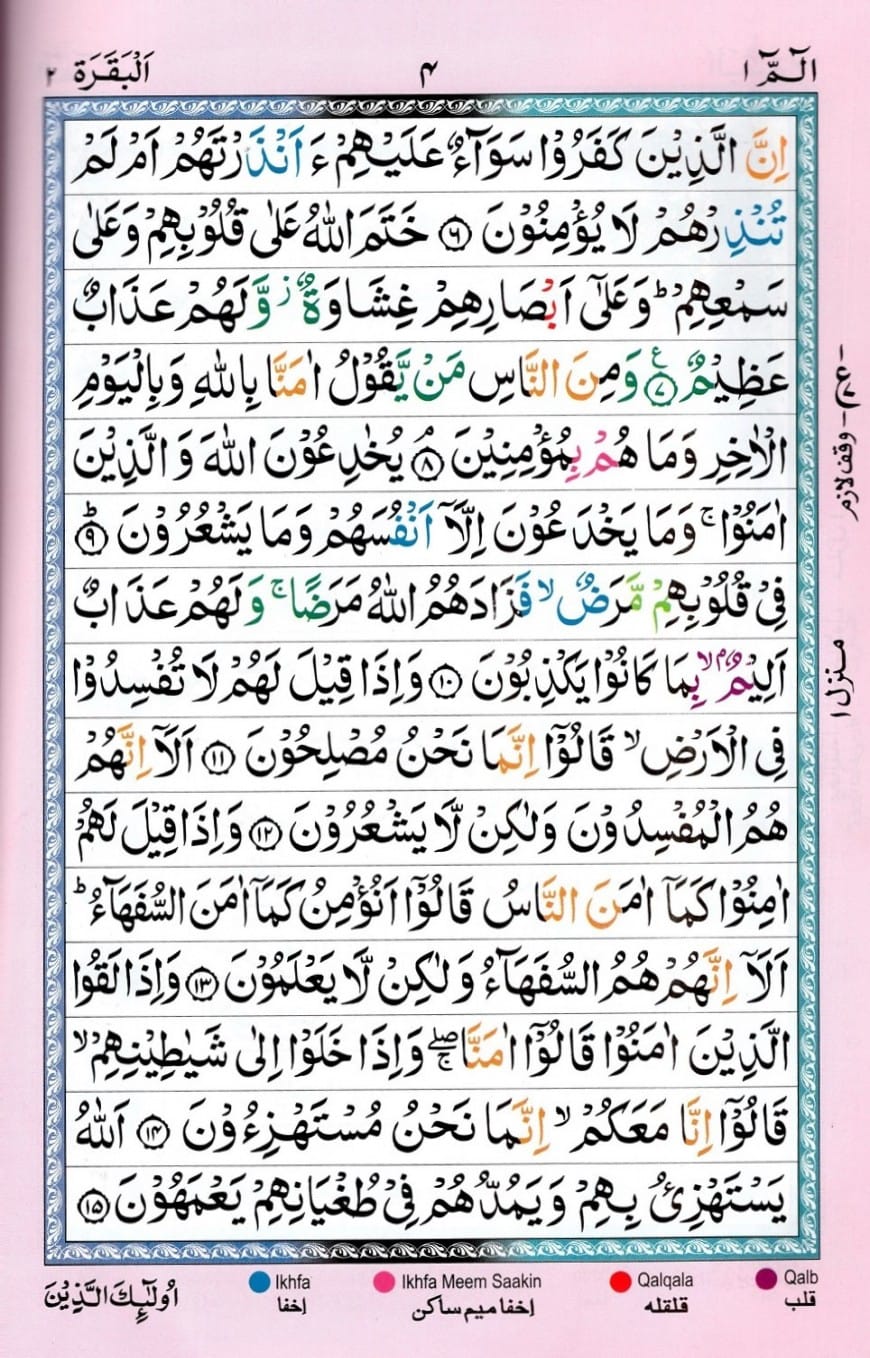 الٓـمّٓ ١ ۴ اَلْبَقَرَة ٢
اِنَّ الَّذِيْنَ كَفَرُوْا سَوَآءٌ عَلَيْهِمْ ءَ اَنْذَرْتَهُمْ اَمْ لَمْ
تُنْذِرْهُمْ لَا يُؤْمِنُوْنَ ۶ خَتَمَ اللّٰهُ عَلٰى قُلُوْبِهِمْ وَعَلٰى
سَمْعِهِمْ ؕ وَعَلٰٓى اَبْصَارِهِمْ غِشَاوَةٌ ز وَّلَهُمْ عَذَابٌ
عَظِيْمٌ ۷ ع وَمِنَ النَّاسِ مَنْ يَّقُوْلُ اٰمَنَّا بِاللّٰهِ وَبِالْيَوْمِ
الْاٰخِرِ وَمَا هُمْ بِمُؤْمِنِيْنَ ۘ ۸ يُخٰدِعُوْنَ اللّٰهَ وَ الَّذِيْنَ
اٰمَنُوْا ۚ وَمَا يَخْدَعُوْنَ اِلَّآ اَنْفُسَهُمْ وَمَا يَشْعُرُوْنَ ؕ ۹
فِىْ قُلُوْبِهِمْ مَّرَضٌ ۙ فَزَادَهُمُ اللّٰهُ مَرَضًا ۚ وَلَهُمْ عَذَابٌ
اَلِيْمٌۢ ۙ بِمَا كَانُوْا يَكْذِبُوْنَ ۱۰ وَاِذَا قِيْلَ لَهُمْ لَا تُفْسِدُوْا
فِى الْاَرْضِ ۙ قَالُوْٓا اِنَّمَا نَحْنُ مُصْلِحُوْنَ ۱۱ اَلَآ اِنَّهُمْ
هُمُ الْمُفْسِدُوْنَ وَلٰكِنْ لَّا يَشْعُرُوْنَ ۱۲ وَاِذَا قِيْلَ لَهُمْ
اٰمِنُوْا كَمَآ اٰمَنَ النَّاسُ قَالُوْٓا اَنُؤْمِنُ كَمَآ اٰمَنَ السُّفَهَآءُ ؕ
اَلَآ اِنَّهُمْ هُمُ السُّفَهَآءُ وَلٰكِنْ لَّا يَعْلَمُوْنَ ۱۳ وَاِذَا لَقُوا
الَّذِيْنَ اٰمَنُوْا قَالُوْٓا اٰمَنَّا ۖۚ وَاِذَا خَلَوْا اِلٰى شَيٰطِيْنِهِمْ ۙ
قَالُوْٓا اِنَّا مَعَكُمْ ۙ اِنَّمَا نَحْنُ مُسْتَهْزِءُوْنَ ۱۴ اَللّٰهُ
يَسْتَهْزِئُ بِهِمْ وَيَمُدُّهُمْ فِىْ طُغْيَانِهِمْ يَعْمَهُوْنَ ۱۵
وقف لازم
منزل ۱
اُولٰٓئِكَ الَّذِيْنَ
Ikhfa Ikhfa Meem Saakin Qalqala Qalb
اخفا اخفا میم ساکن قلقله قلب